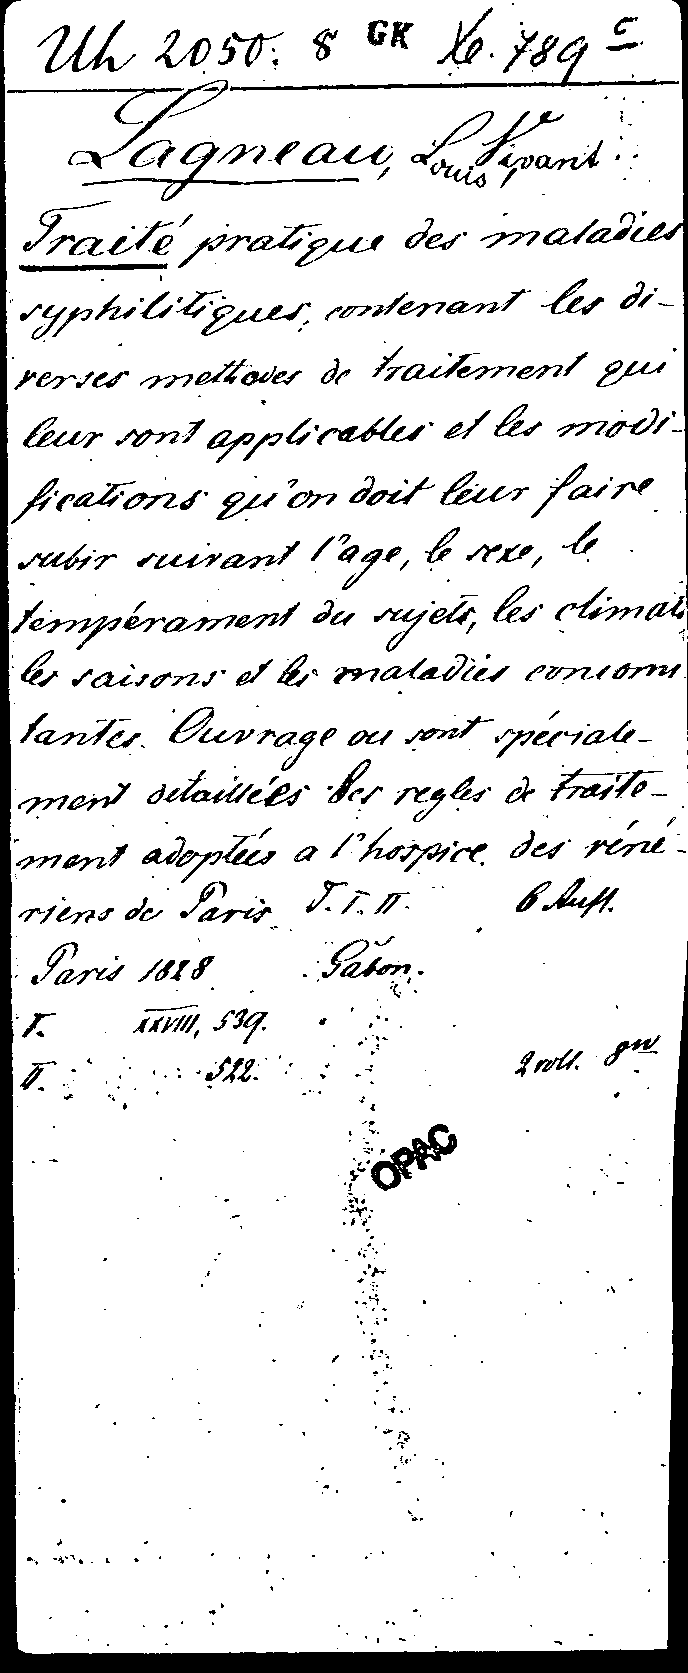 Uh 2050: 8 GK Xe. 789 c
Lagneau, Louis Vivant
Traité pratique des maladies
syphilitiques, contenant les di-
verses methodes de traitement qui
leur sont applicables et les modi-
fications qu'on doit leur faire
subir suivant l'age, le sexe, le
tempérament du sujets, les climats
les saisons et les maladies concomi
tantes. Ouvrage ou sont spéciale-
ment detaillées les regles de traite-
ment adoptées a l'hospice des véné-
riens de Paris T. I. II. 6 Aufl.
Paris 1828 Gabon.
I. XXVIII, 539.
II. 522. 2 voll.
OPAC